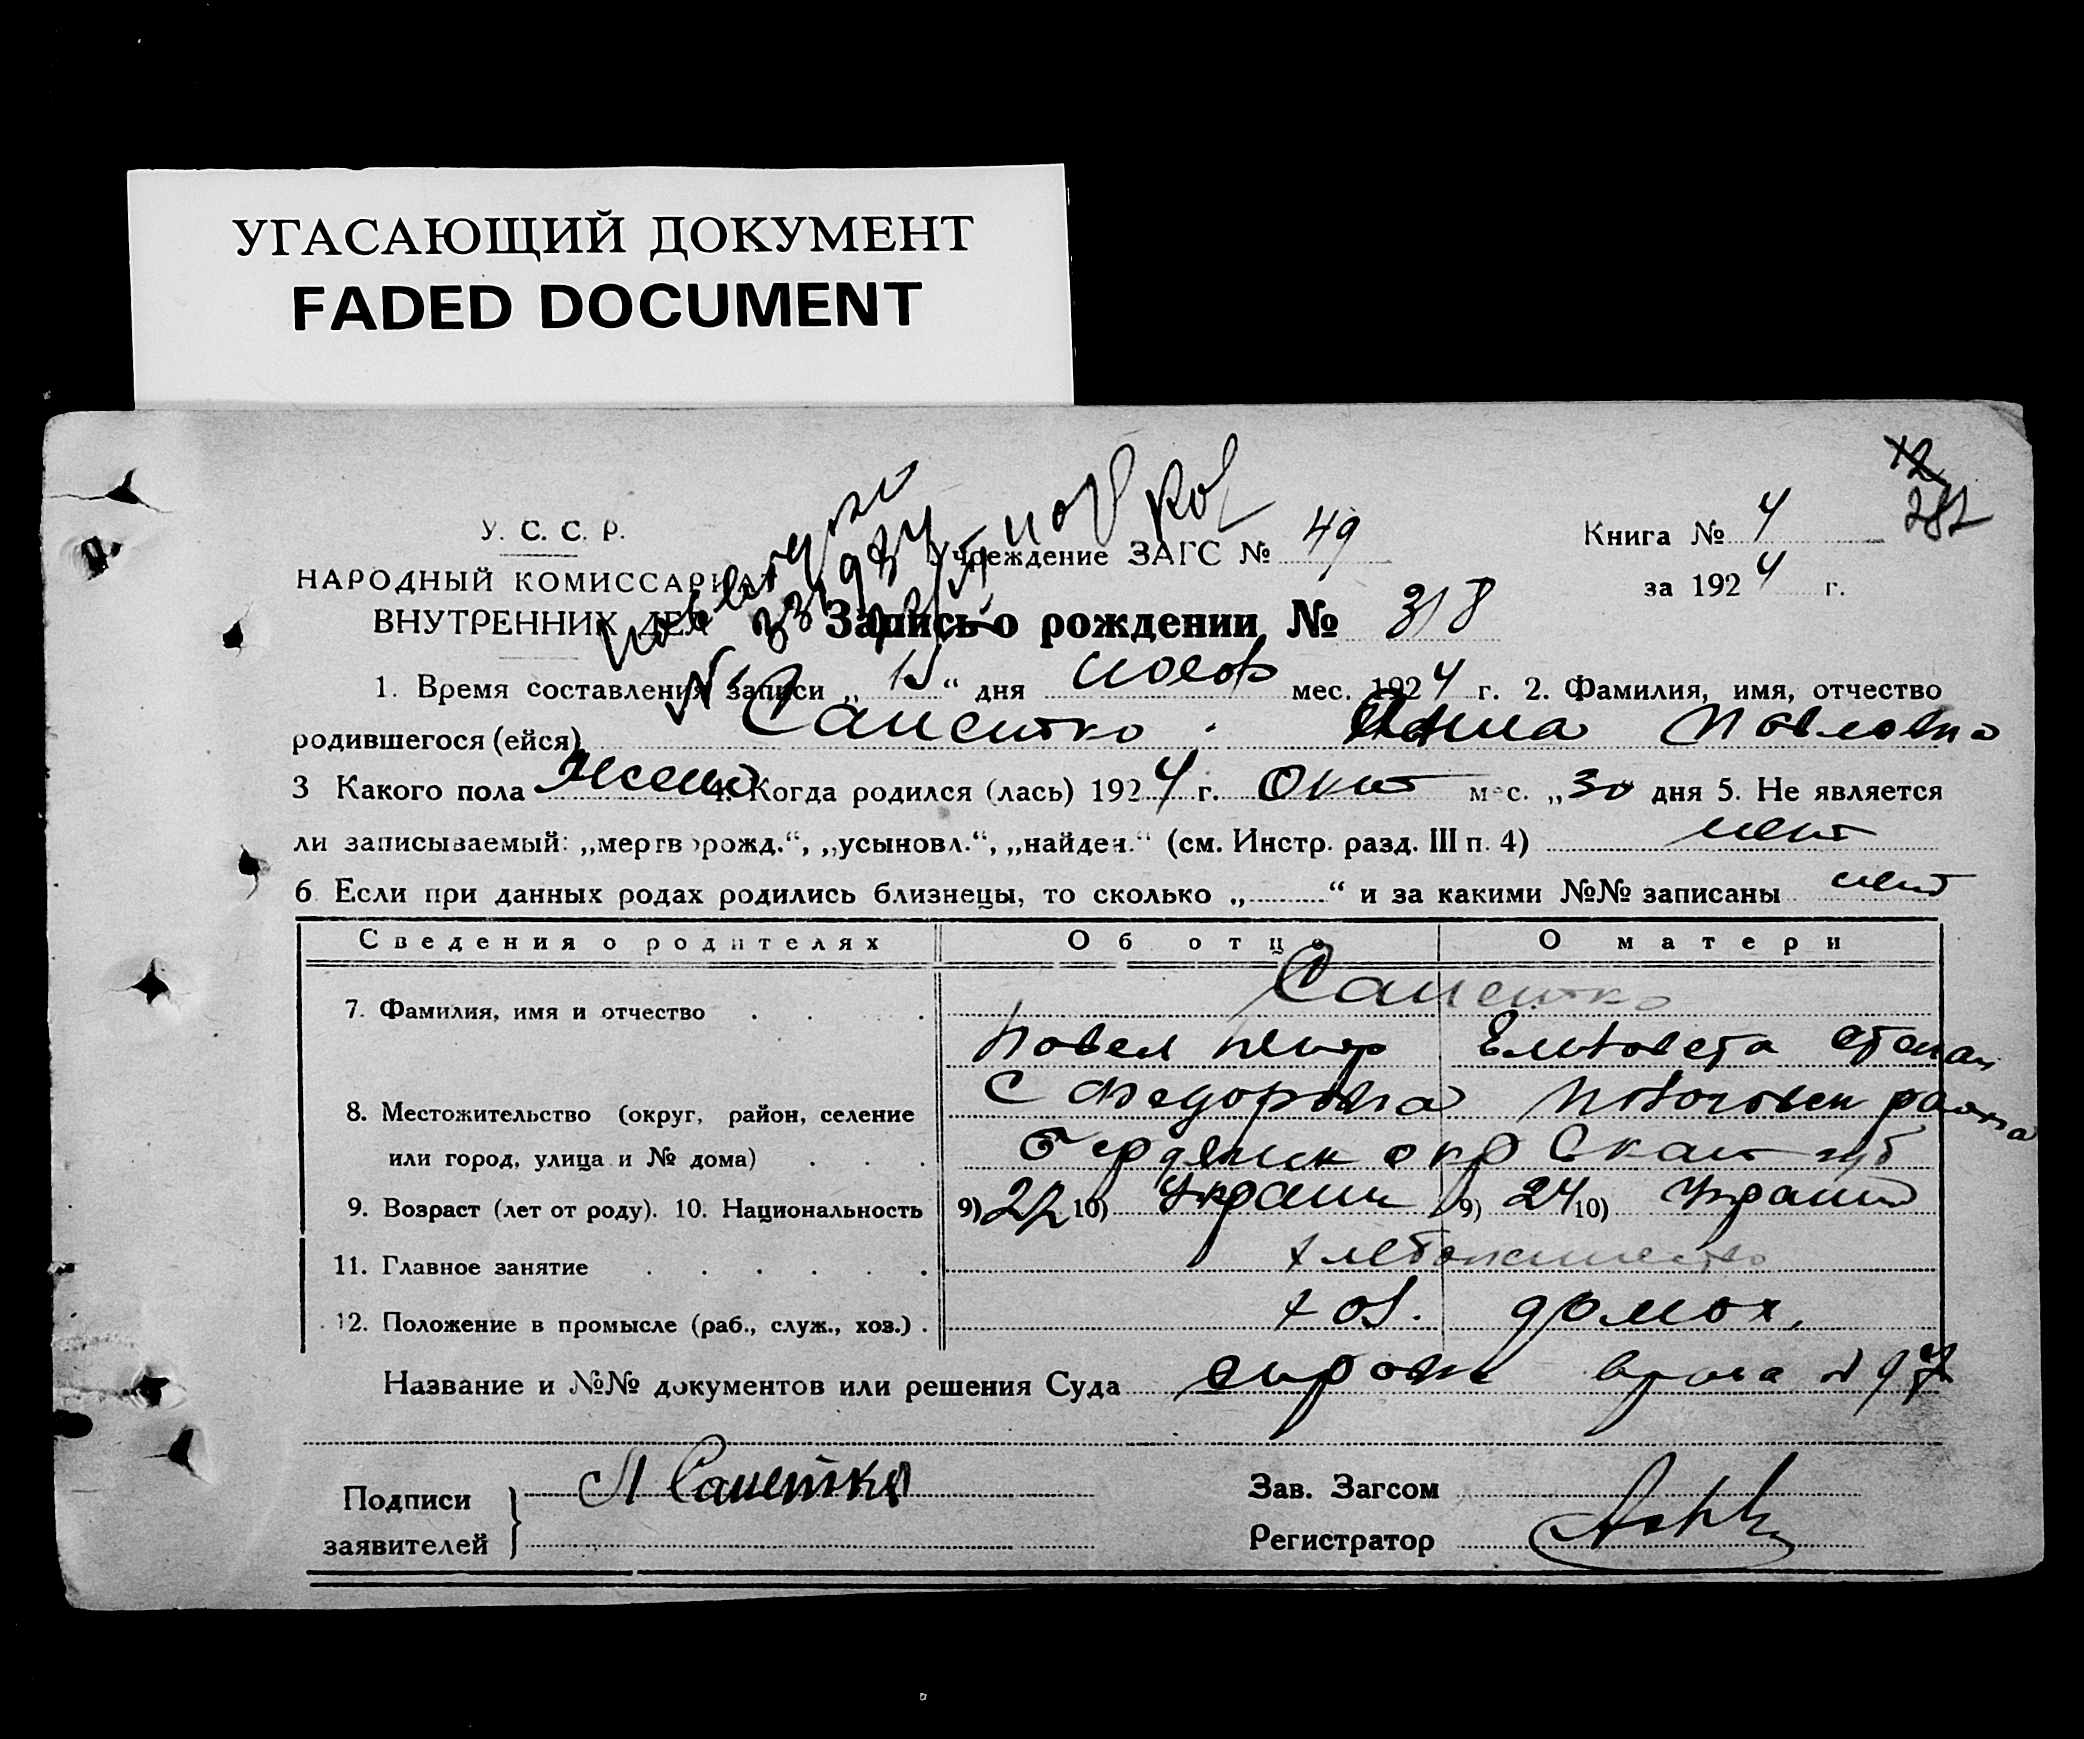 УГАСАЮЩИЙ ДОКУМЕНТ
FADED DOCUMENT
У. С. С. Р.
НАРОДНЫЙ КОМИССАРИАТ
ВНУТРЕННИХ ДЕЛ
Учреждение ЗАГС № 49
Книга № 4
за 1924 г.
282
Запись о рождении № 318
1. Время составления записи „15“ дня нояб мес. 1924 г. 2. Фамилия, имя, отчество
родившегося (ейся) Анна Павловна
3 Какого пола Женс 4. Когда родился (лась) 1924 г. Окт мес. „30 дня 5. Не является
ли записываемый: „мертворожд.“, „усыновл.“, „найден.“ (см. Инстр. разд. III п. 4) нет
6 Если при данных родах родились близнецы, то сколько „ “ и за какими №№ записаны нет
Сведения о родителях Об отце О матери
7. Фамилия, имя и отчество
Павел петр Елизовета степан
8. Местожительство (округ, район, селение С Федоровка района
или город, улица и № дома) бердянск окр Екат губ
9. Возраст (лет от роду). 10. Национальность 9) 22 10) Украин 9) 24 10) Украин
11. Главное занятие хлебопашество
12. Положение в промысле (раб., служ., хоз.) хоз. домох.
Название и №№ документов или решения Суда врача
Подписи
заявителей
Зав. Загсом
Регистратор